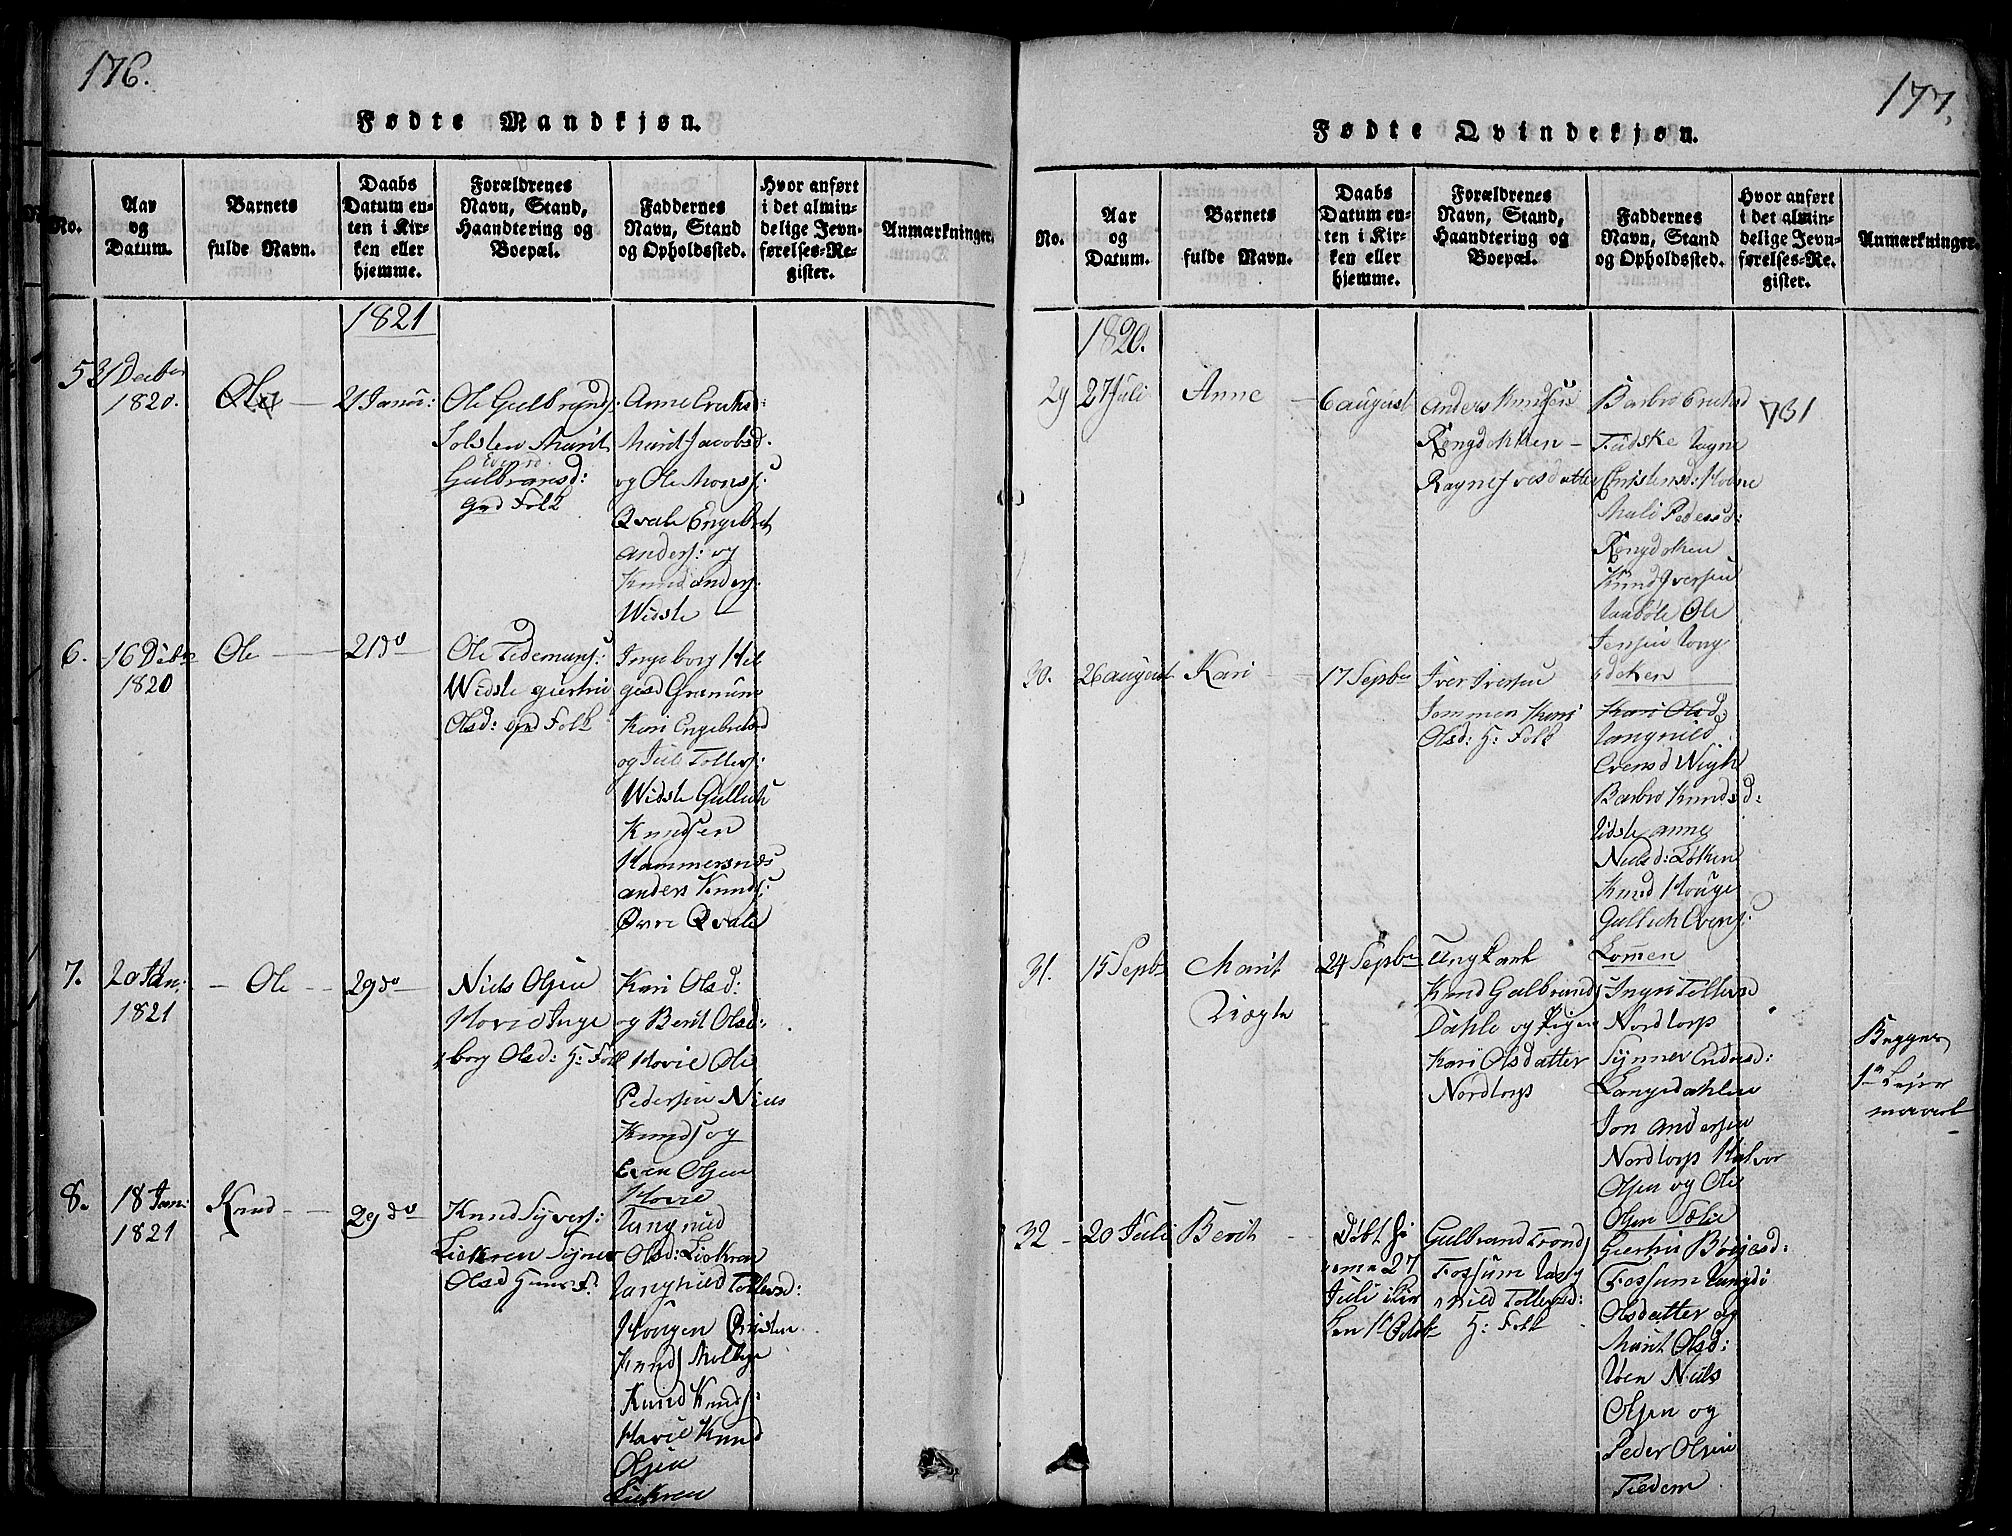 176.
Fødte Mandkjøn.
No.
Aar
og
Datum.
Barnets
fulde Navn.
Daabs
Datum en-
ten i Kir-
ken eller
hjemme.
Forældrenes
Navn, Stand,
Haandtering og
Boepæl.
Faddernes
Navn, Stand
og Opholdssted.
Hvor anført
i det almin-
delige Jevn-
førelses-Re-
gister.
Anmærkninger.
1821
5
31 Decbr
1820.
Ole
21 Janu:
Ole Gulbrands:
Solsten Marit
Evensd.
Gulbransd:
grd Folk
Anne Erichsd:
Marit Jacobsd.
og Ole Mons:
Qvale Engebret
Anders: og
Knud Anders:
Widste
6.
16 Debr
1820
Ole
21 do
Ole Tidemans:
Widste giertru
Olsd: grd Folk
Ingeborg Hel
gesd Granum
Kari Engebretsd
og Juli Tollefs:
Widste Gullich
Knudsen
Hammersnæs
anders Knuds:
Øvre Qvale
7.
20 Jan:
1821
Ole
29 do
Niels Olsen
Hovie Inge
borg Olsd: H: Folk
Kari Olsd:
og Berit Olsd:
Hovie Ole
Pedersen Niels
Knuds og
Even Olsen
Hovie
8.
18 Jan:
1821
Knud
29 do
Knud Syvers:
Liekren Signe
Olsd Huus F.
Rangnild
Olsd: Liekren
Rangnild Tollevsd:
Hougen Christen
Knuds Melbye
Knud Knuds:
Hovie Knud
Olsen
Liekren
177.
Fødte Qvindekjøn.
No.
Aar
og
Datum.
Barnets
fulde Navn.
Daabs
Datum en-
ten i Kir-
ken eller
hjemme.
Forældrenes
Navn, Stand,
Haandtering og
Boepæl.
Faddernes
Navn, Stand
og Opholdssted.
Hvor anført
i det almin-
delige Jevn-
førelses-Re-
gister.
Anmærkninger.
1820.
29
27 Juli
Anne
6 august
Anders Knudsen
Rengdokken
Ragne Ivesdatter
Barbro Erichsd
Fadske Ragne
Christensd: Hovne
Mali Pedersd:
Rengdoken
Knud Iversen
Ole
Jensen Reng
doken
731
30.
26 august
Kari
17 Sepbr
Iver Iversen
Jommen Kari
Olsd: H: Folk
Kari Olsd
Rangnild
Evensd Wigh
Barbro Knudsd:
Udste anne
Nielsd: Løken
Knud Houge
Gullich Evens:
Lomen
31.
15 Sepbr
Marit
Uægte
24 Sepbr
Ungkarl
Knud Gulbrands
Dahle og Pigen
Kari Olsdatter
Nordtorp
Ingri Tollevsd
Nordtorp
Synner Endersd:
Langedahlen
Jon Andersen
Nordtorp Halvor
Olsen og Ole
Olsen Sælie
Begges
1ste Leier
maal
32
20 Juli
Berit
Døbt hi
eme 27
Juli i kir
ken 1 Octbr
Gulbrand Tronds
Fossum Rag
nild Tollevsd:
H: Folk
Giertru Børjesd:
Fossum Rangdi
Olsdatter og
Marit Olsd:
Roen Niels
Olsen og
Peder Olsen
Tiedem